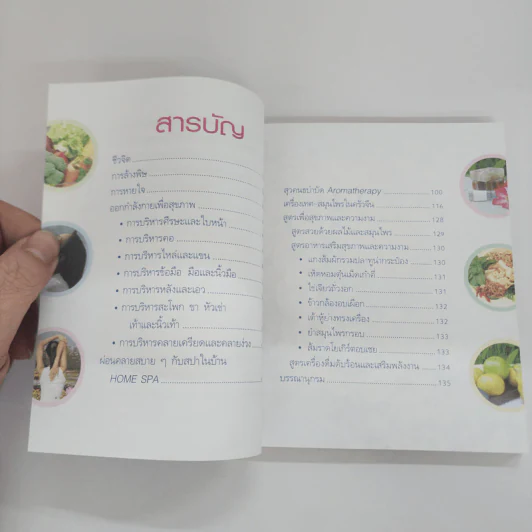 สารบัญ
ชีวจิต
การล้างพิษ
การหายใจ
ออกกำลังกายเพื่อสุขภาพ
• การบริหารศีรษะและใบหน้า
• การบริหารคอ
• การบริหารไหล่และแขน
• การบริหารข้อมือ มือและนิ้วมือ
• การบริหารหลังและเอว
• การบริหารสะโพก ขา หัวเข่า
เท้าและนิ้วเท้า
• การบริหารคลายเครียดและคลายง่วง
ผ่อนคลายสบาย ๆ กับสปาในบ้าน
HOME SPA
สุวคนธบำบัด Aromatherapy 100
เครื่องเทศ-สมุนไพรในครัวจีน 116
สูตรเพื่อสุขภาพและความงาม 128
สูตรสวยด้วยผลไม้และสมุนไพร 129
สูตรอาหารเสริมสุขภาพและความงาม 130
• แกงส้มผักรวมปลาทูน่ากระป๋อง 131
• เห็ดหอมตุ๋นเม็ดเก๋ากี้ 131
• ไข่เจียวถั่วงอก 131
• ข้าวกล้องอบเผือก 132
• เต้าหู้ย่างทรงเครื่อง 132
• ยำสมุนไพรกรอบ 133
• ส้มราดโยเกิร์ตอบเชย 133
สูตรเครื่องดื่มดับร้อนและเสริมพลังงาน 134
บรรณานุกรม 135